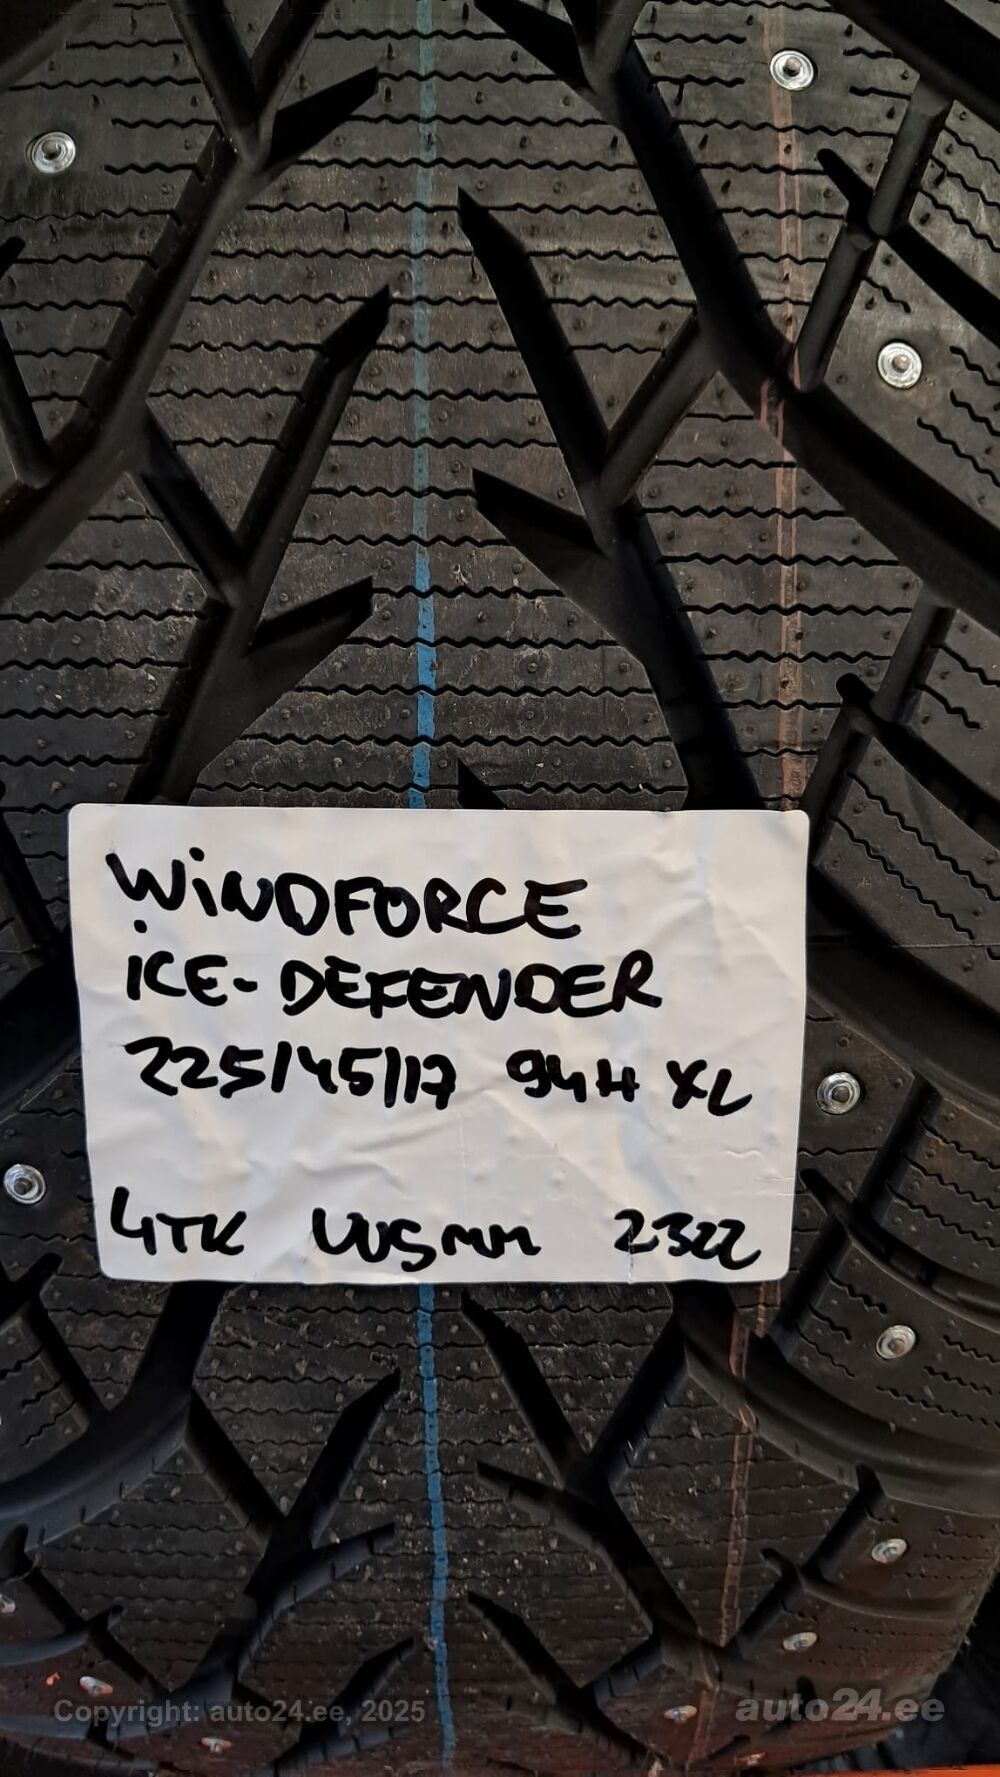 WiNDFORCE
iCE-DEFENDER
225/45/17 94H XL
4TK UUS MM 2322
Copyright: auto24.ee, 2025
auto24.ee